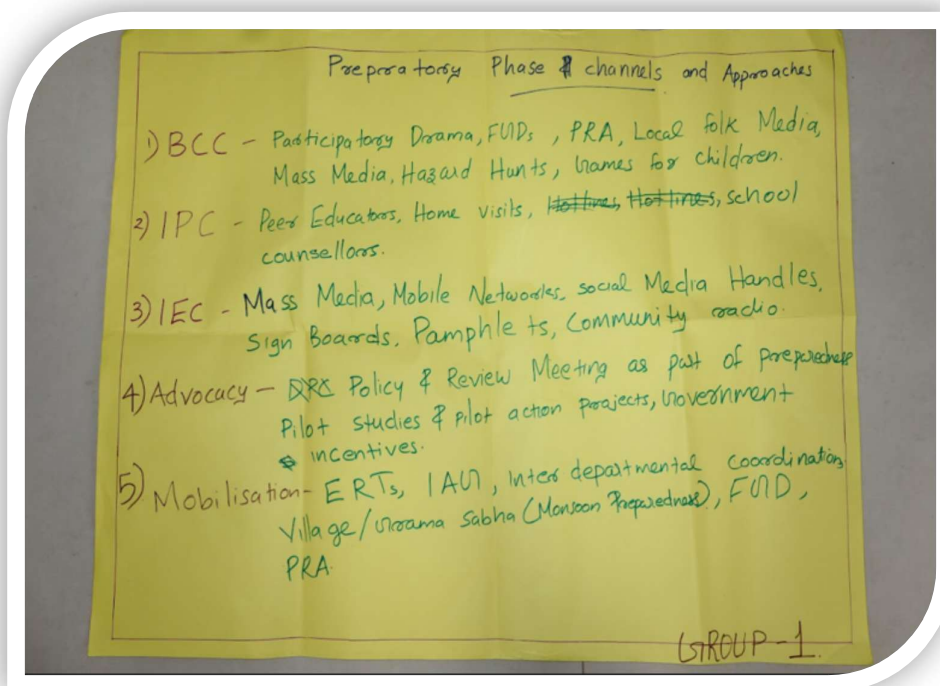 Preperatory Phase & channels and Approaches
1) BCC - Participatory Drama, FGDs, PRA, Local folk Media,
Mass Media, Hazard Hunts, Games for children.
2) IPC - Peer Educators, Home visits, Hotlines, Hotlines, school
counsellors.
3) IEC - Mass Media, Mobile Networks, social Media Handles,
Sign Boards, Pamphlets, Community radio.
4) Advocacy - Policy & Review Meeting as part of preparedness
Pilot studies & pilot action projects, Government
incentives.
5) Mobilisation - ERTs, IAG, Inter departmental coordination,
Village/Grama Sabha (Monsoon Preparedness), FGD,
PRA.
GROUP-1.